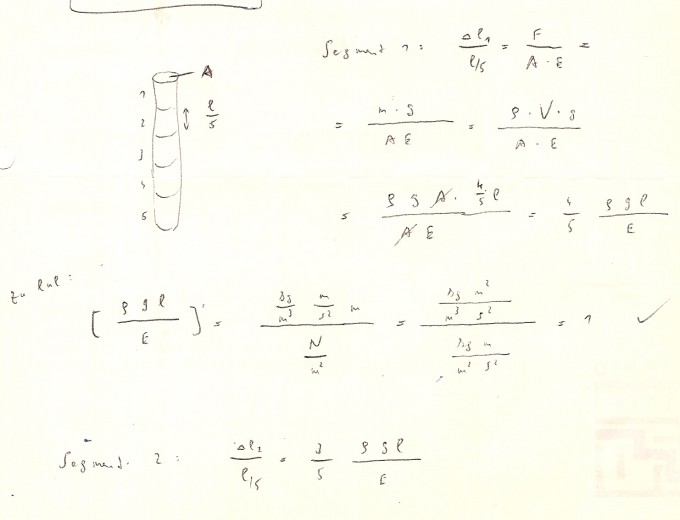 Segment 1: Δl₁ / l/5 = F / A · E =
A
1
2
3
4
5
l/5
= m · g / A E = ρ · V · g / A · E
= ρ g A · 4/5 l / A E = 4/5 ρ g l / E
[ ρ g l / E ] = kg/m³ m/s² m / N/m² = kg m² / m³ s² / kg m / m² s² = 1 ✓
Segment 2: Δl₂ / l/5 = 3/5 ρ g l / E